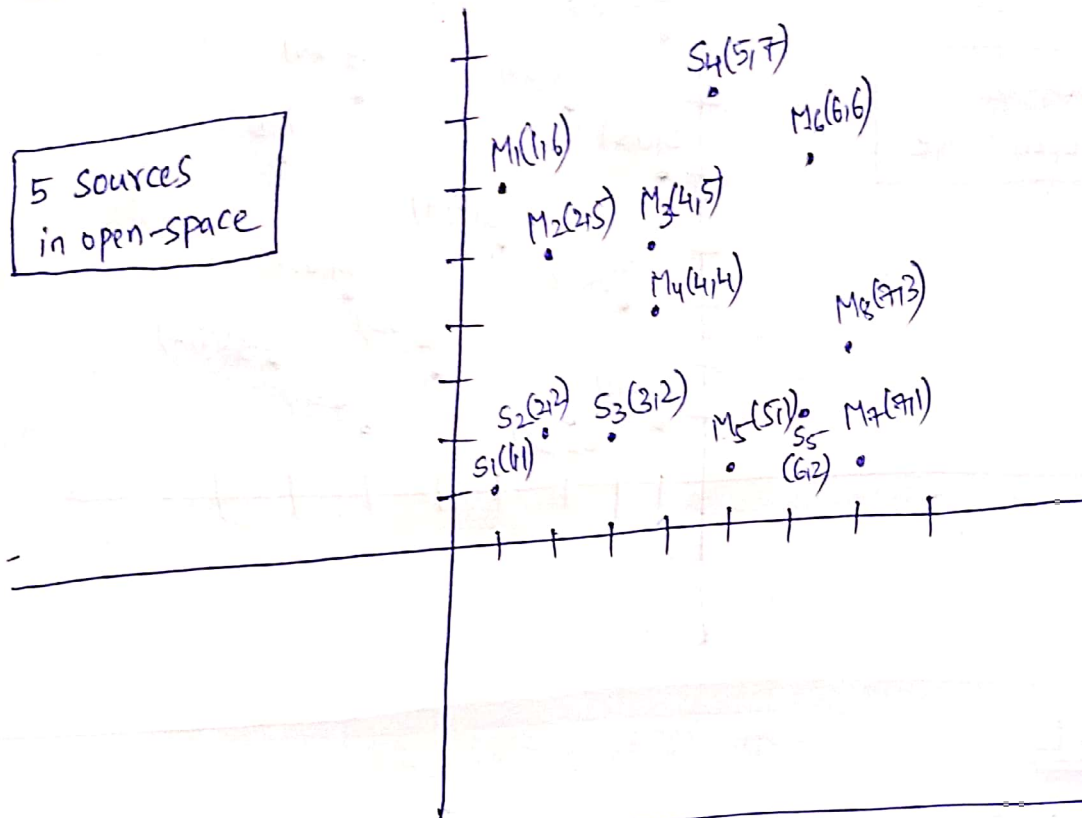 5 sources
in open-space
S4(5,7)
M6(6,6)
M1(1,6)
M2(2,5)
M3(4,5)
M4(4,4)
M8(7,3)
S2(2,2)
S3(3,2)
M5(5,1)
S5
(6,2)
M7(7,1)
S1(1,1)